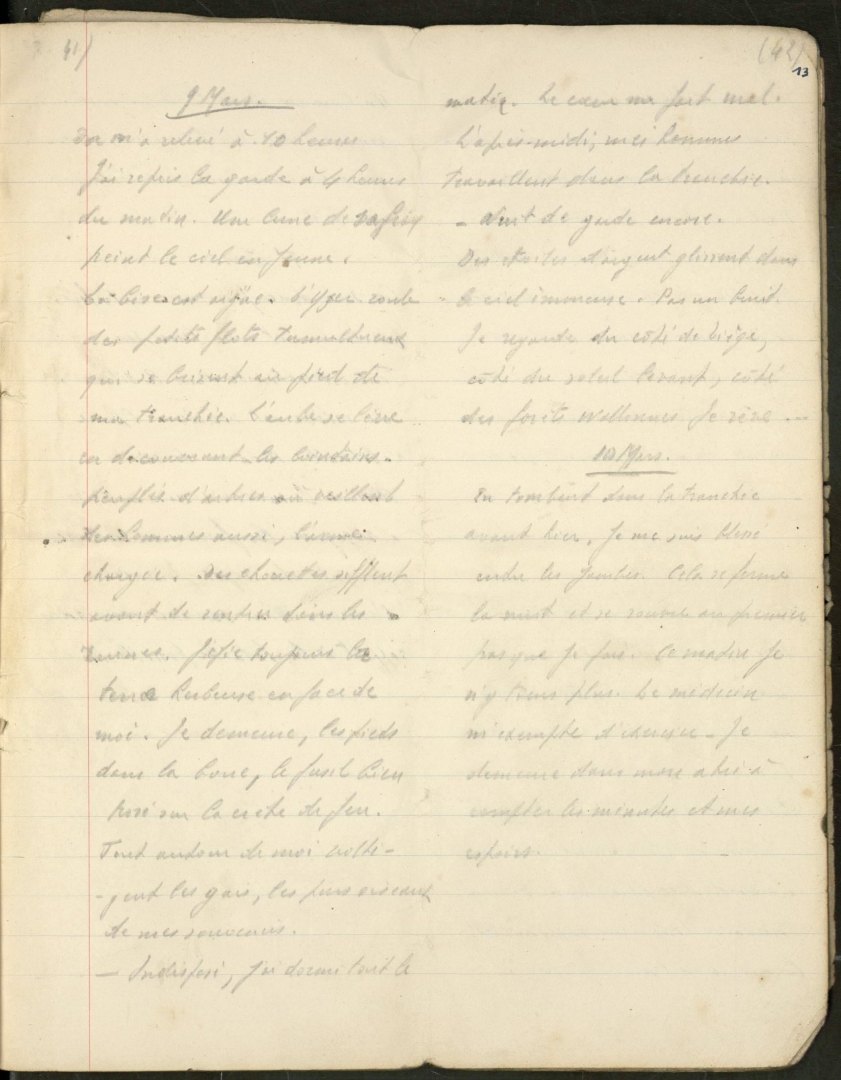 41)
9 Mars.
On m'a relevé à 10 heures
J'ai repris la garde à 4 heures
du matin. Une lune de
peint le ciel en jaune.
La bise est aigre. L'Yser roule
des petits flots tumultueux
qui se brisent au pied de
ma tranchée. L'aube se lève
en découvrant les lointains
peuplés d'arbres où veillent
des hommes aussi, l'arme
chargée. Des chouettes sifflent
avant de rentrer dans les
ruines. J'épie toujours la
terre herbeuse en face de
moi. Je demeure, les pieds
dans la boue, le fusil bien
posé sur la crête de feu.
Tout autour de moi volti-
-gent les gais, les purs oiseaux
de mes souvenirs.
— Indisposé, j'ai dormi tout le
(42)
13
matin. Le cœur me fait mal.
L'après-midi, mes hommes
travaillent dans la tranchée.
- Nuit de garde encore.
Des étoiles d'argent glissent dans
le ciel immense. Pas un bruit.
Je regarde du côté de Liège,
côté du soleil levant, côté
des forêts wallonnes. Je rêve ...
10 Mars.
En tombant dans la tranchée
avant hier, je me suis blessé
les jambes. Cela se ferme
la nuit et se rouvre au premier
pas que je fais. Ce matin je
n'y tiens plus. Le médecin
m'exempte d'exercice. Je
demeure dans mon abri à
compter les minutes et mes
espoirs.